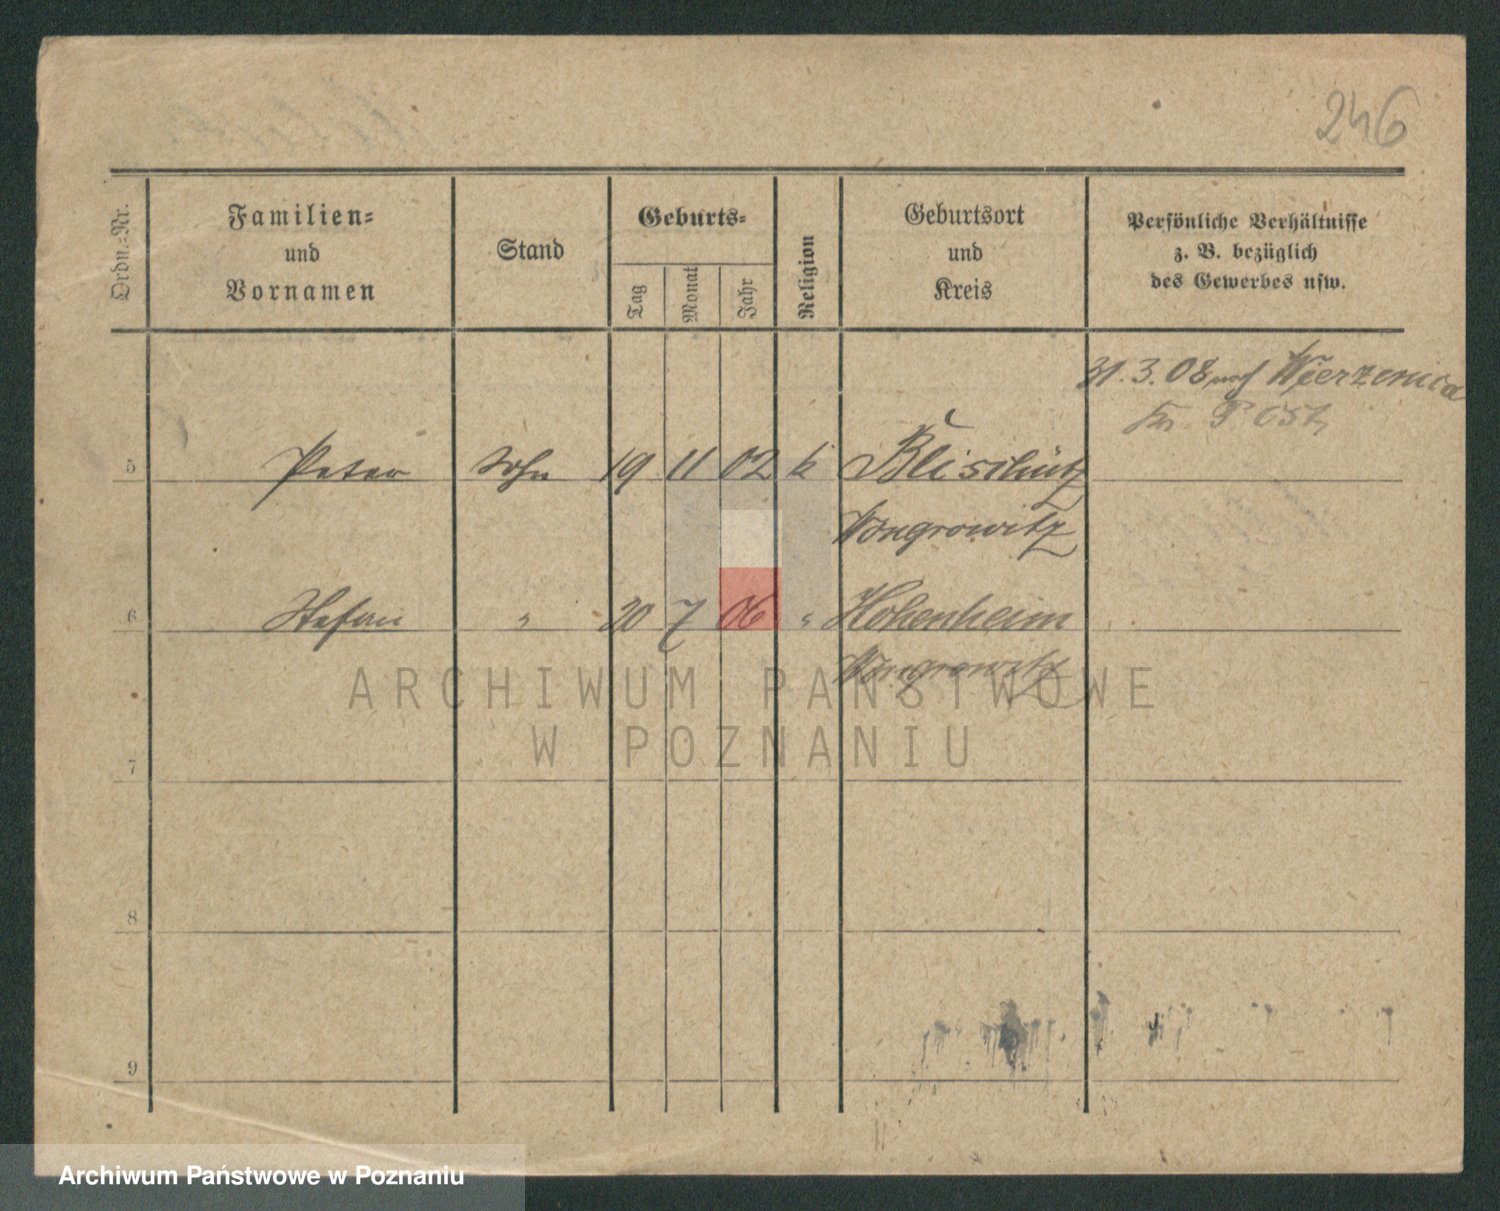 246
Ordn.=Nr.
Familien=
und
Vornamen
Stand
Geburts=
Tag
Monat
Jahr
Religion
Geburtsort
und
Kreis
Persönliche Verhältnisse
z. B. bezüglich
des Gewerbes usw.
31. 3. 08 nach Wierzenica
Kr. P. Ost
5 Peter Sohn 19 11 02 k
Wongrowitz
6 Stefan " 7 06 " Hohenheim
Wongrowitz
ARCHIWUM PAŃSTWOWE
W POZNANIU
7
8
9
Archiwum Państwowe w Poznaniu